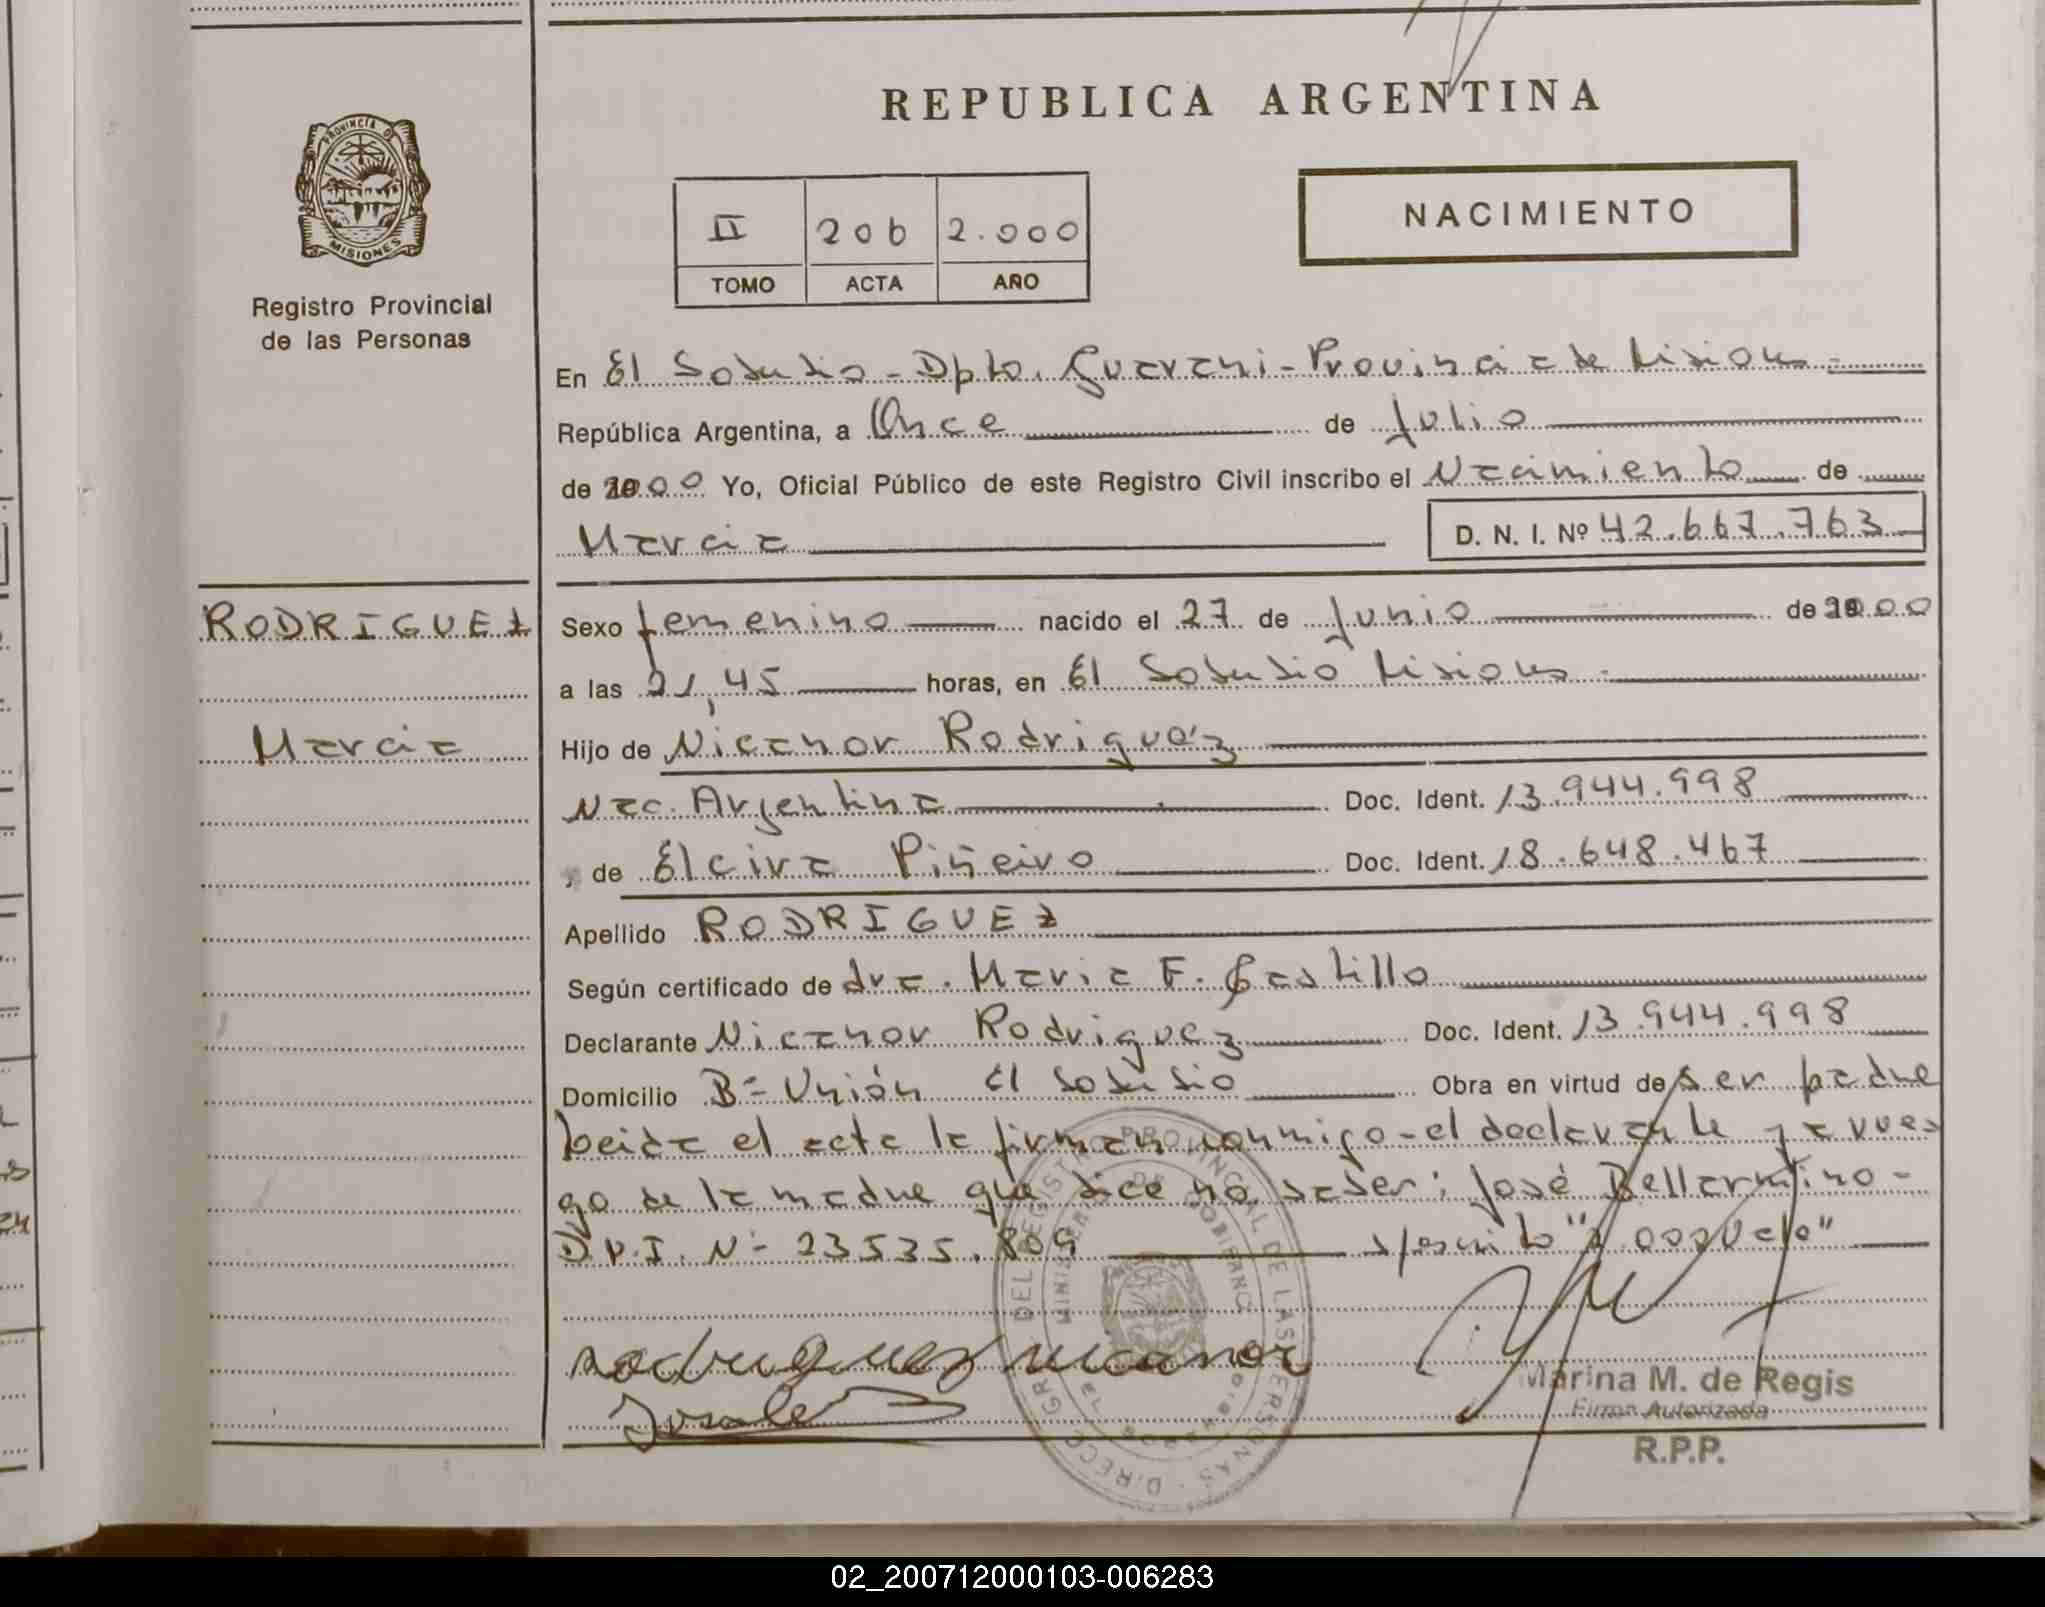 REPUBLICA ARGENTINA
PROVINCIA DE
MISIONES
Registro Provincial
de las Personas
II 206 2.000
TOMO ACTA AÑO
NACIMIENTO
En El Soberbio - Dpto. Guarani - Provincia de Misiones -
República Argentina, a Once de Julio
de 2000 Yo, Oficial Público de este Registro Civil inscribo el Nacimiento de
Marcia D. N. I. Nº 42.667.763
RODRIGUEZ
Marcia
Sexo femenino nacido el 27 de Junio de 2000
a las 21,45 horas, en El Soberbio Misiones
Hijo de Nicanor Rodriguéz
Nac. Argentina Doc. Ident. 13.944.998
, de Elcira Piñeiro Doc. Ident. 18.648.467
Apellido RODRIGUEZ
Según certificado de dra. Maria F. Castillo
Declarante Nicanor Rodriguez Doc. Ident. 13.944.998
Domicilio Bº Unión El Soberbio Obra en virtud de ser padre
Leida el acta la firman conmigo - el declarante y a rue
go de la madre que dice no saber; José Bellarmino -
D.N.I. Nº 23535.809
rodriguez nicanor
Marina M. de Regis
Firma Autorizada
R.P.P.
02_200712000103-006283